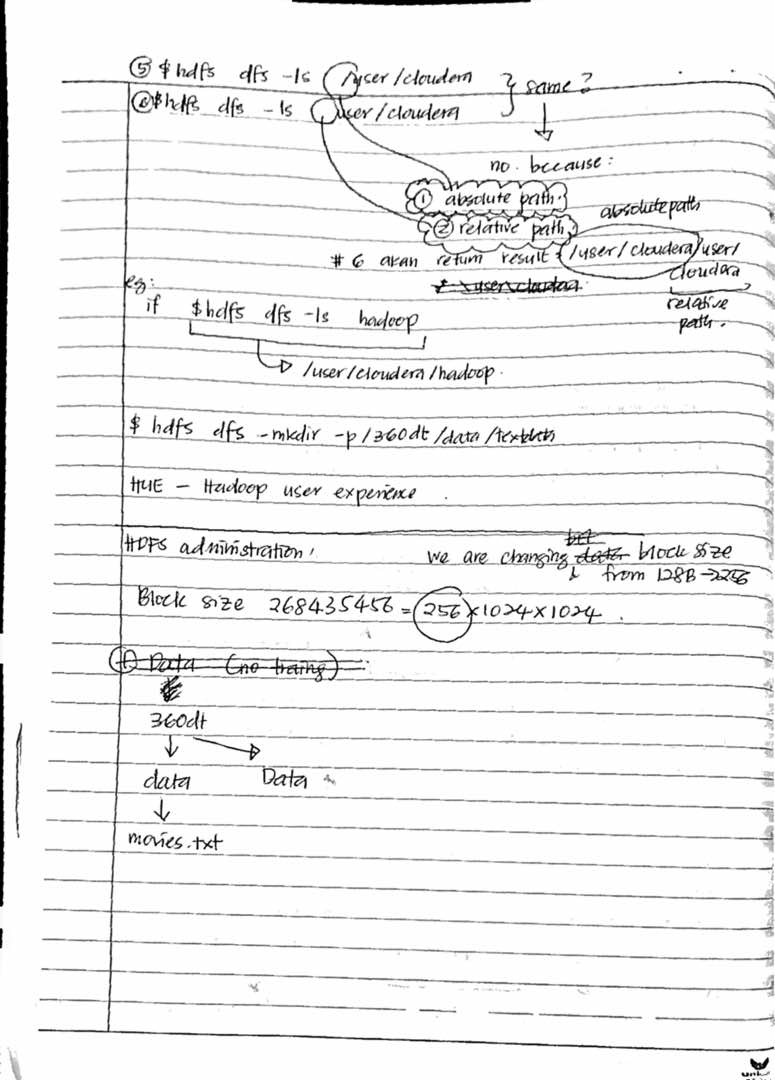 ⑤ $ hdfs dfs -ls /user/cloudera } same?
⑥ $ hdfs dfs -ls user/cloudera
no. because:
① absolute path.
② relative path.
absolute path
# 6 akan return result = /user/cloudera/user/
cloudera
relative
path.
eg:
if $ hdfs dfs -ls hadoop
/user/cloudera/hadoop.
$ hdfs dfs -mkdir -p /360dt/data/
HUE - Hadoop user experience.
HDFS administration.
we are changing block size
from 128B → 256
Block size 268435456 = 256 x 1024 x 1024.
Data (no
360dt
data Data
movies.txt